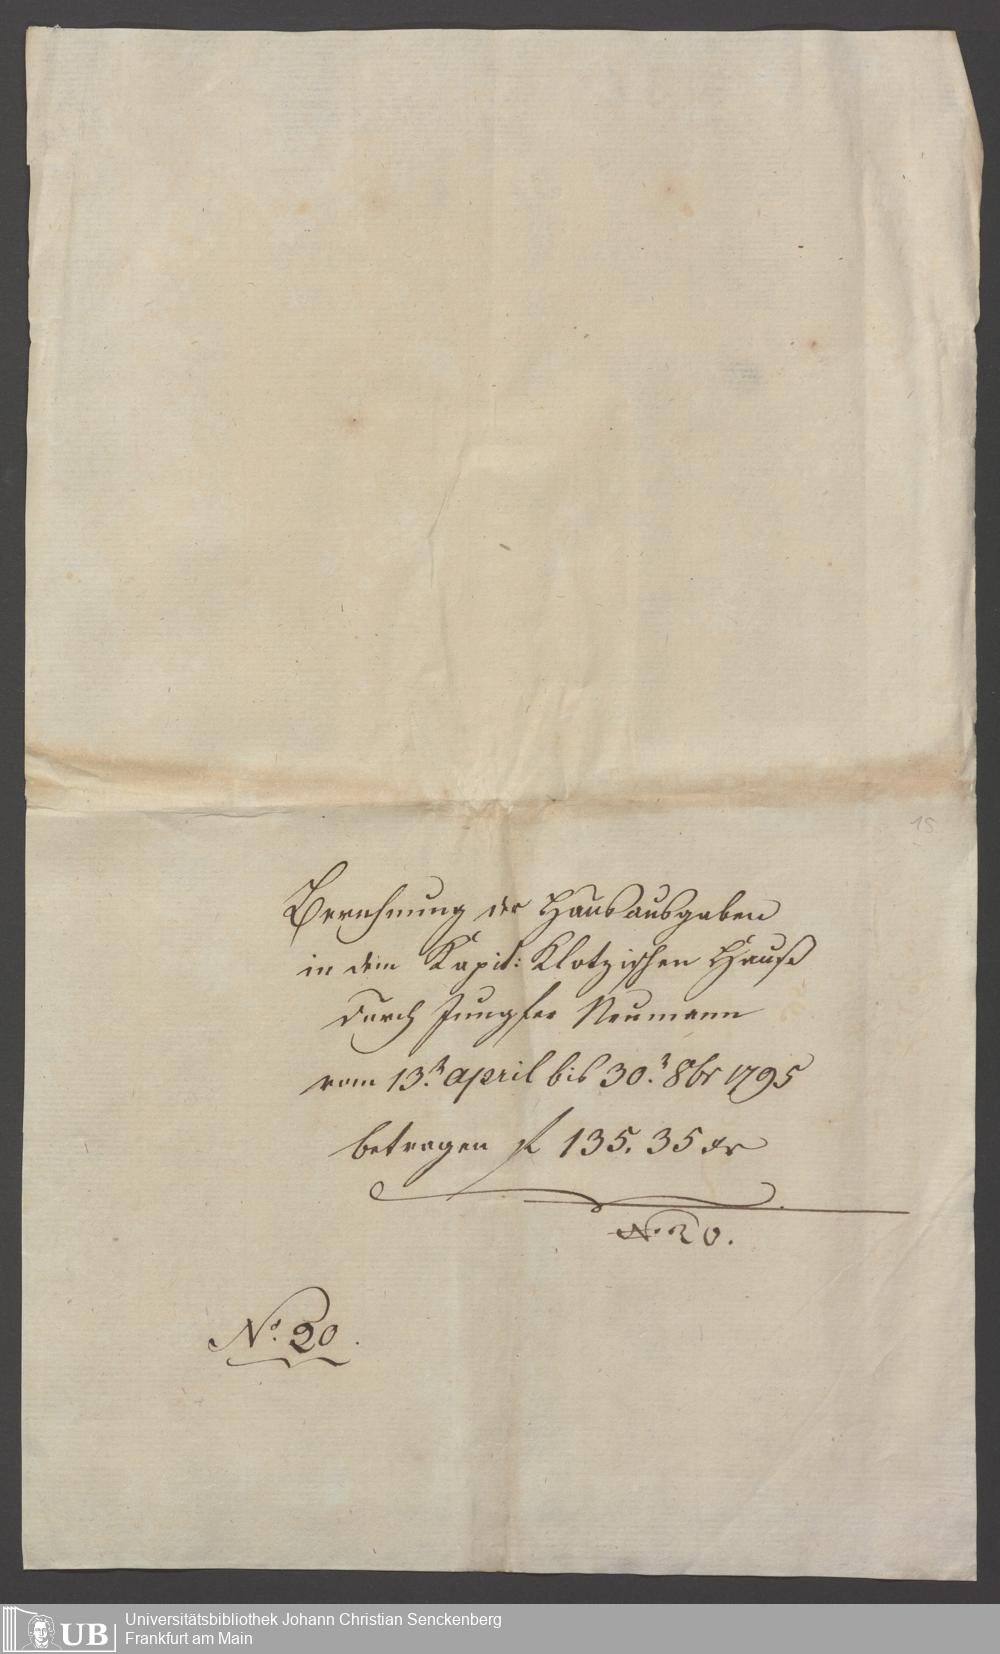 15
Berechnung der Hausausgaben
in dem Kapit: Klotzischen Hauße
durch Jungfer Neumann
vom 13.n april bis 30.n 8br 1795
betragen f 135. 35 xr
N. 20.
No. 20.
UB
Universitätsbibliothek Johann Christian Senckenberg
Frankfurt am Main